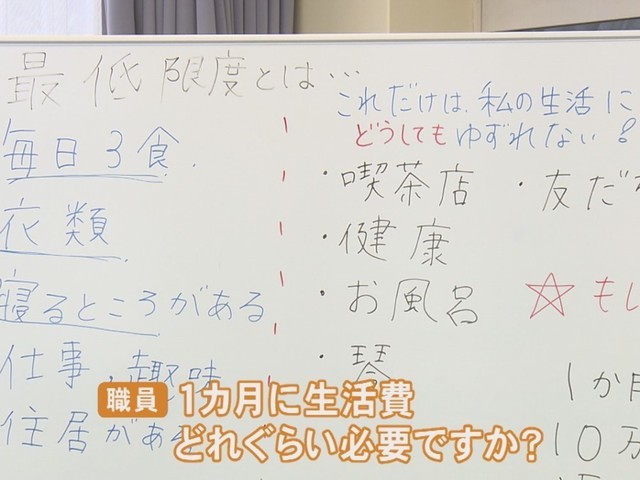 最低限度とは…
毎日3食.
衣類
寝るところがある
仕事・趣味
住居があ
これだけは、私の生活に
どうしてもゆずれない!
・喫茶店
・健康
・お風呂
・琴
・友だ
☆もし
1か月
10万
職員 1カ月に生活費
どれぐらい必要ですか?